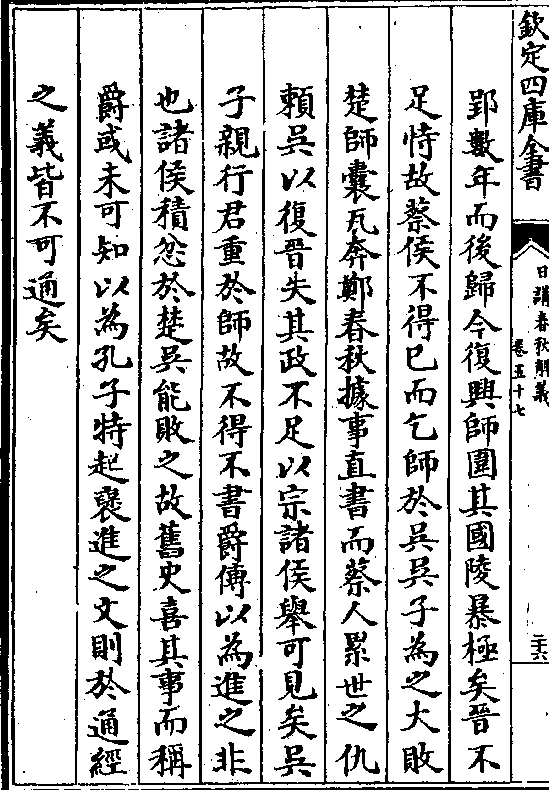 欽定四庫全書
日講春秋解義
卷五十七
二十六
郢數年而後歸今復興師圍其國陵暴極矣晉不
足恃故蔡侯不得已而乞師於吳吳子為之大敗
楚師囊瓦奔鄭春秋據事直書而蔡人累世之仇
賴吳以復晉失其政不足以宗諸侯舉可見矣吳
子親行君重於師故不得不書爵傳以為進之非
也諸侯積忿於楚吳能敗之故舊史喜其事而稱
爵或未可知以為孔子特起褒進之文則於通經
之義皆不可通矣